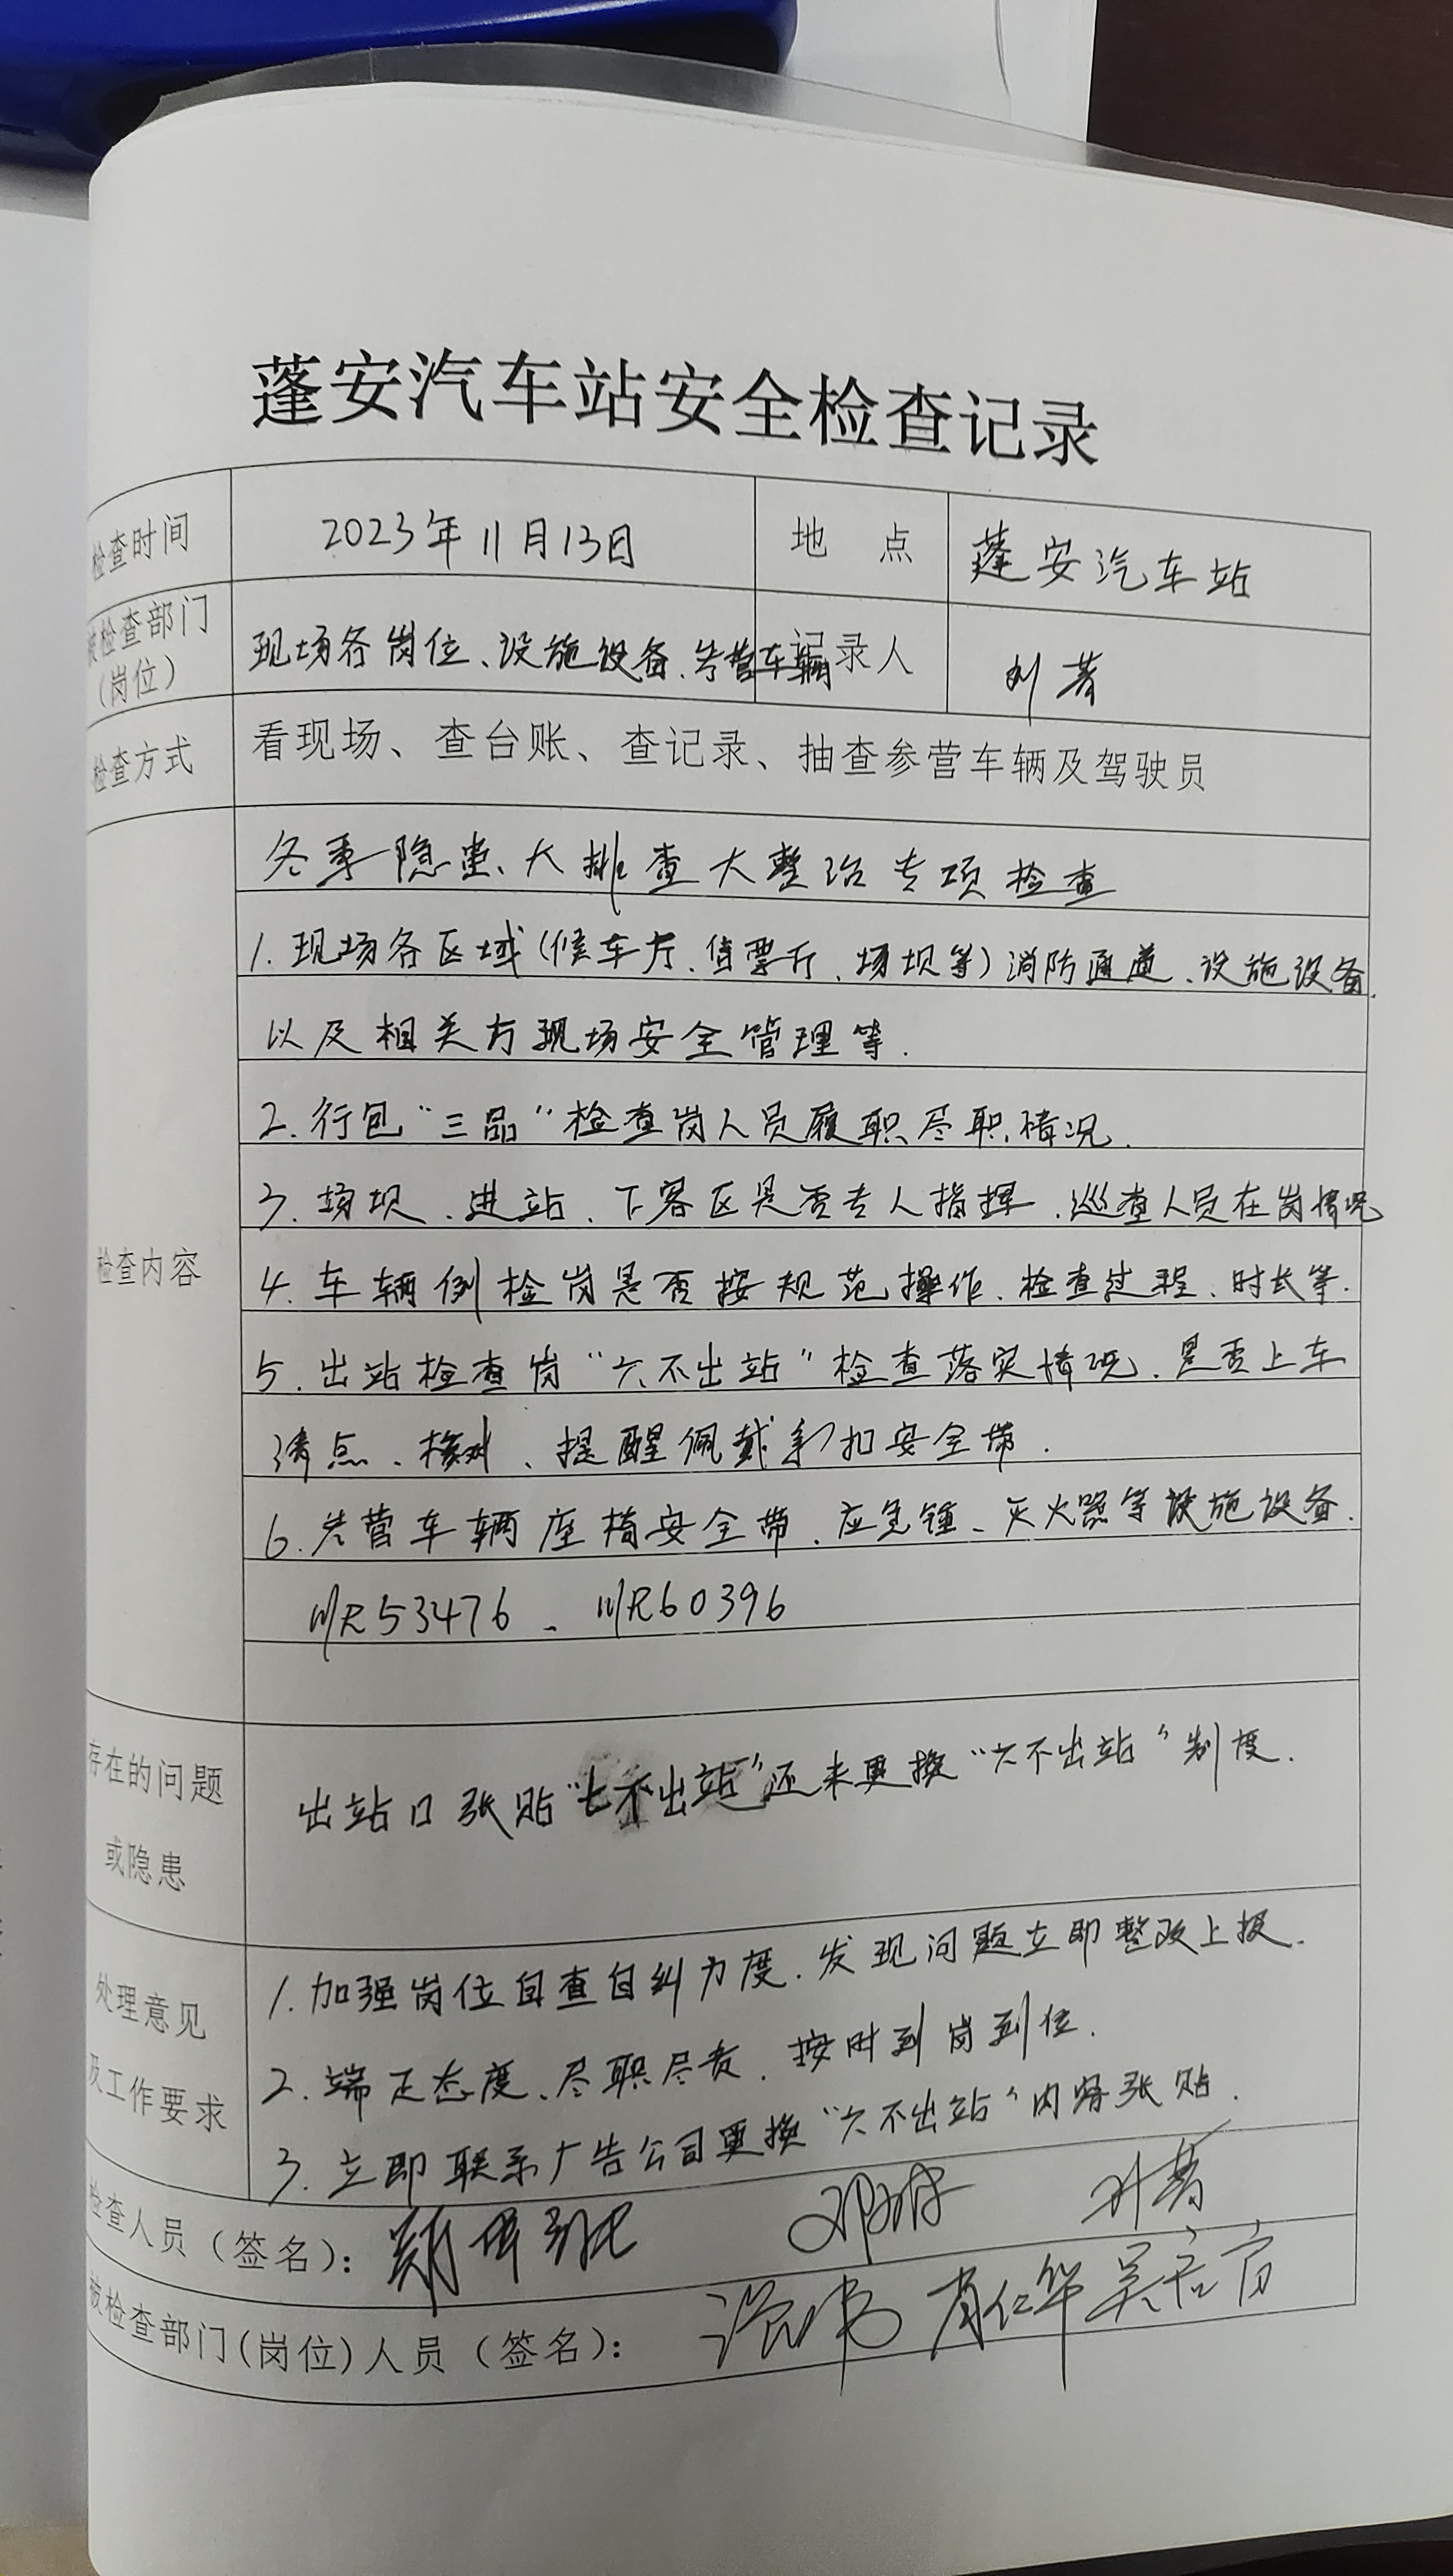 蓬安汽车站安全检查记录
检查时间 2023年11月13日 地 点 蓬安汽车站
被检查部门(岗位) 现场各岗位、设施设备、参营车辆 记录人 刘菁
检查方式 看现场、查台账、查记录、抽查参营车辆及驾驶员
检查内容
冬季隐患大排查大整治专项检查
1. 现场各区域(候车厅、售票厅、场坝等)消防通道、设施设备,
以及相关方现场安全管理等.
2. 行包“三品”检查岗人员履职尽职情况.
3. 场坝、进站、下客区是否专人指挥、巡查人员在岗情况
4. 车辆例检岗是否按规范操作、检查过程、时长等.
5. 出站检查岗“六不出站”检查落实情况、是否上车
清点、核对、提醒佩戴系扣安全带.
6. 参营车辆座椅安全带、应急锤、灭火器等设施设备.
川R53476、川R60396
存在的问题
或隐患
出站口张贴“七不出站”还未更换“六不出站”制度.
处理意见
及工作要求
1. 加强岗位自查自纠力度.发现问题立即整改上报.
2. 端正态度、尽职尽责、按时到岗到位.
3. 立即联系广告公司更换“六不出站”内容张贴.
检查人员(签名): 刘菁
被检查部门(岗位)人员(签名): 肖仁华